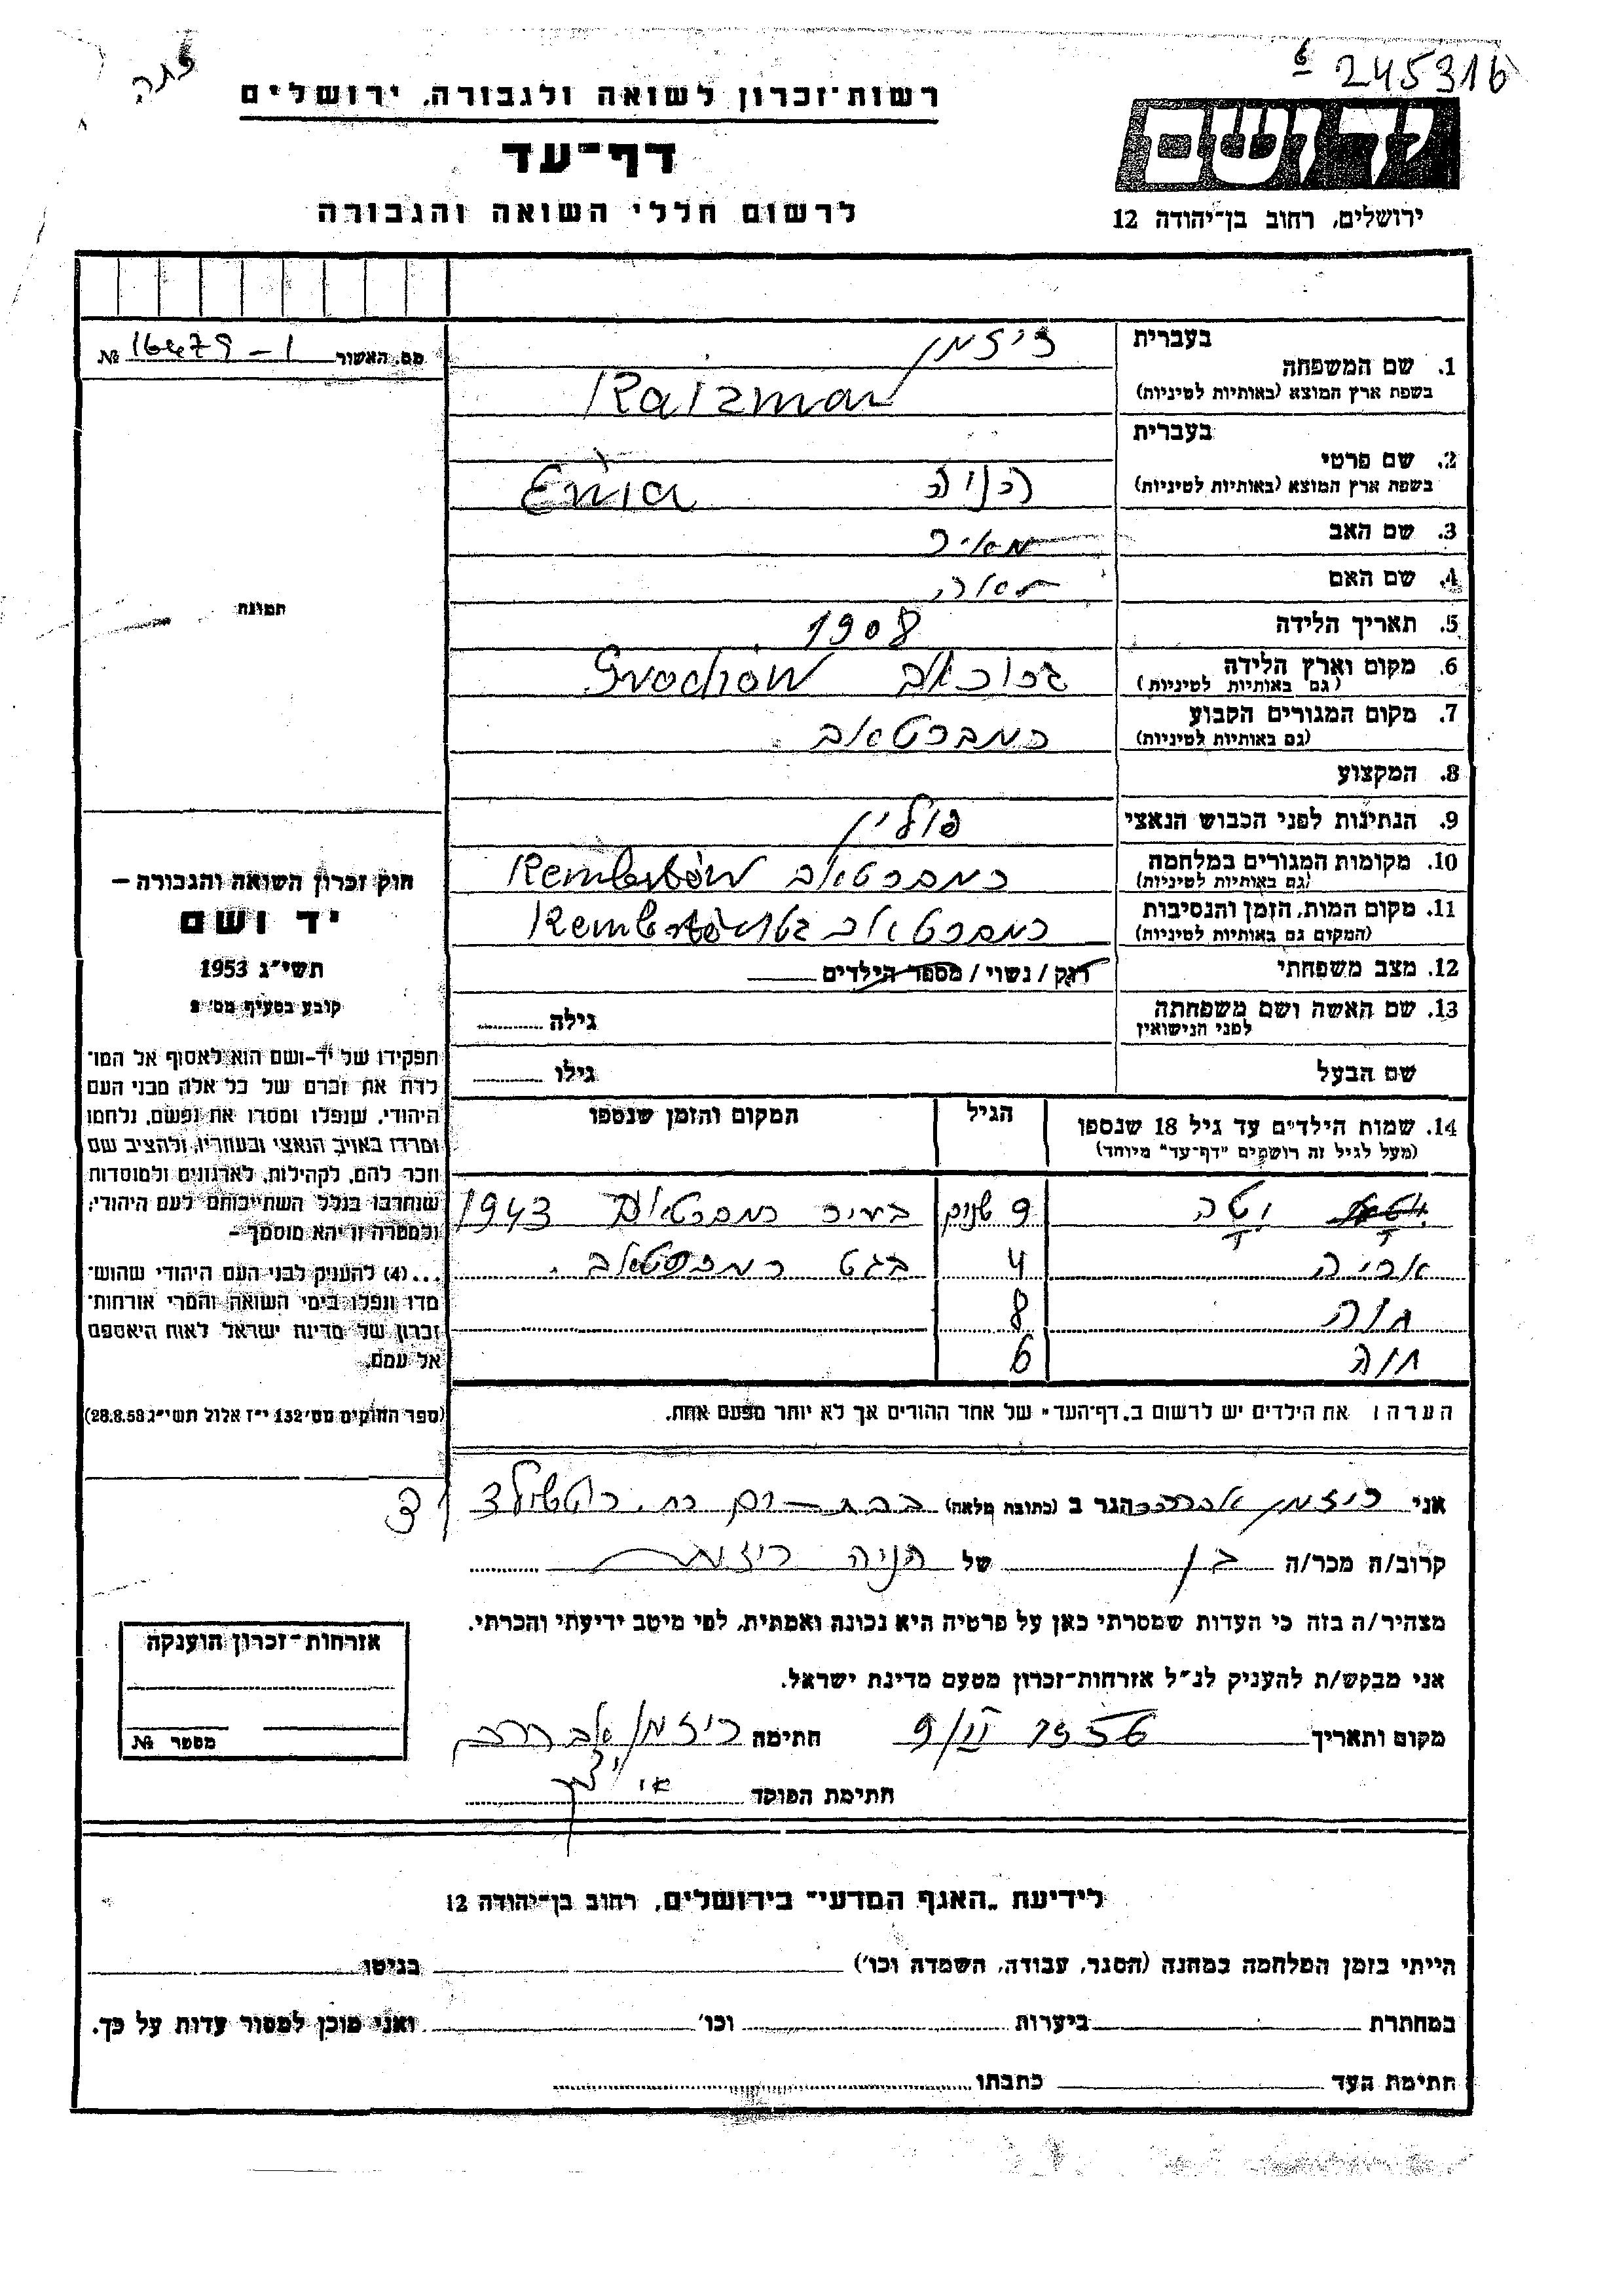 245316
רשות־זכרון לשואה ולגבורה, ירושלים
דף־עד
לרשום חללי השואה והגבורה
יד ושם
ירושלים, רחוב בן־יהודה 12
מס. האשור 1 - 16479 №
תמונה
1. שם המשפחה
בעברית
ריזמן
בשפת ארץ המוצא (באותיות לטיניות)
Raizman
2. שם פרטי
בעברית
בשפת ארץ המוצא (באותיות לטיניות)
הניה Enia
3. שם האב מאיר
4. שם האם
5. תאריך הלידה 1908
6. מקום וארץ הלידה
(גם באותיות לטיניות)
גרוכאב Grochów
7. מקום המגורים הקבוע
(גם באותיות לטיניות)
רמברטאב
8. המקצוע
9. הנתינות לפני הכבוש הנאצי פולין
10. מקומות המגורים במלחמה
(גם באותיות לטיניות)
רמברטאב Rembertów
11. מקום המות, הזמן והנסיבות
(המקום גם באותיות לטיניות)
רמברטאב גטו Rembertów
12. מצב משפחתי רוק / נשוי / מספר הילדים
13. שם האשה ושם משפחתה
לפני הנישואין
גילה
שם הבעל גילו
14. שמות הילדים עד גיל 18 שנספו
(מעל לגיל זה רושמים "דף־עד" מיוחד)
הגיל
המקום והזמן שנספו
יטה 9 שנים בעיר רמברטאב 1943
אריה 4 בגט רמברטאב.
חוה 8
חוה 6
הערה: את הילדים יש לרשום ב„דף־העד" של אחד ההורים אך לא יותר מפעם אחת.
חוק זכרון השואה והגבורה –
יד ושם
תשי"ג 1953
קובע בסעיף מס' 2
תפקידו של יד-ושם הוא לאסוף אל המו־
לדת את זכרם של כל אלה מבני העם
היהודי, שנפלו ומסרו את נפשם, נלחמו
ומרדו באויב הנאצי ובעוזריו, ולהציב שם
וזכר להם, לקהילות, לארגונים ולמוסדות
שנחרבו בגלל השתייכותם לעם היהודי;
ולמטרה זו יהא מוסמך –
...(4) להעניק לבני העם היהודי שהוש־
מדו ונפלו בימי השואה והמרי אזרחות־
זכרון של מדינת ישראל לאות היאספם
אל עמם.
(ספר החוקים מס' 132 י"ז אלול תשי"ג 28.8.53)
אני ריזמן אברהם הגר ב (כתובת מלאה) בבת-ים רח. רוטשילד
קרוב/ה מכר/ה בן של הניה ריזמן
מצהיר/ה בזה כי העדות שמסרתי כאן על פרטיה היא נכונה ואמתית, לפי מיטב ידיעתי והכרתי.
אני מבקש/ת להעניק לנ"ל אזרחות־זכרון מטעם מדינת ישראל.
מקום ותאריך 9/II 1956 חתימה ריזמן אברהם
חתימת הפוקד
אזרחות־זכרון הוענקה
מספר №
לידיעת „האגף המדעי" בירושלים, רחוב בן־יהודה 12
הייתי בזמן המלחמה במחנה (הסגר, עבודה, השמדה וכו') בגיטו
במחתרת ביערות וכו' ואני מוכן למסור עדות על כך.
חתימת העד כתבתו